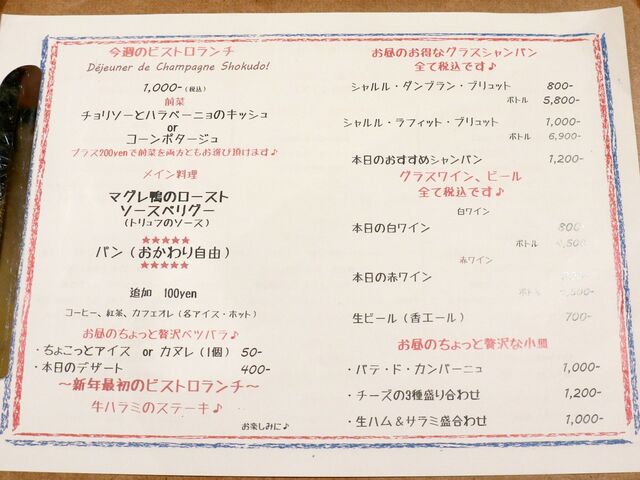 今週のビストロランチ
Déjeuner de Champagne Shokudo!
1,000-(税込)
前菜
チョリソーとハラペーニョのキッシュ
or
コーンポタージュ
プラス200yenで前菜を両方ともお選び頂けます♪
メイン料理
マグレ鴨のロースト
ソースペリグー
(トリュフのソース)
★★★★★
パン(おかわり自由)
★★★★★
追加 100yen
コーヒー、紅茶、カフェオレ(各アイス・ホット)
お昼のちょっと贅沢ベツバラ♪
・ちょこっとアイス or カヌレ(1個) 50-
・本日のデザート 400-
～新年最初のビストロランチ～
牛ハラミのステーキ♪
お楽しみに♪
お昼のお得なグラスシャンパン
全て税込です♪
シャルル・ダンブラン・ブリュット 800-
ボトル 5,800-
シャルル・ラフィット・ブリュット 1,000-
ボトル 6,900-
本日のおすすめシャンパン 1,200-
グラスワイン、ビール
全て税込です♪
白ワイン
本日の白ワイン 800-
ボトル ,500-
赤ワイン
本日の赤ワイン
ボトル
生ビール(香エール) 700-
お昼のちょっと贅沢な小皿
・パテ・ド・カンパーニュ 1,000-
・チーズの3種盛り合わせ 1,200-
・生ハム&サラミ盛合わせ 1,000-